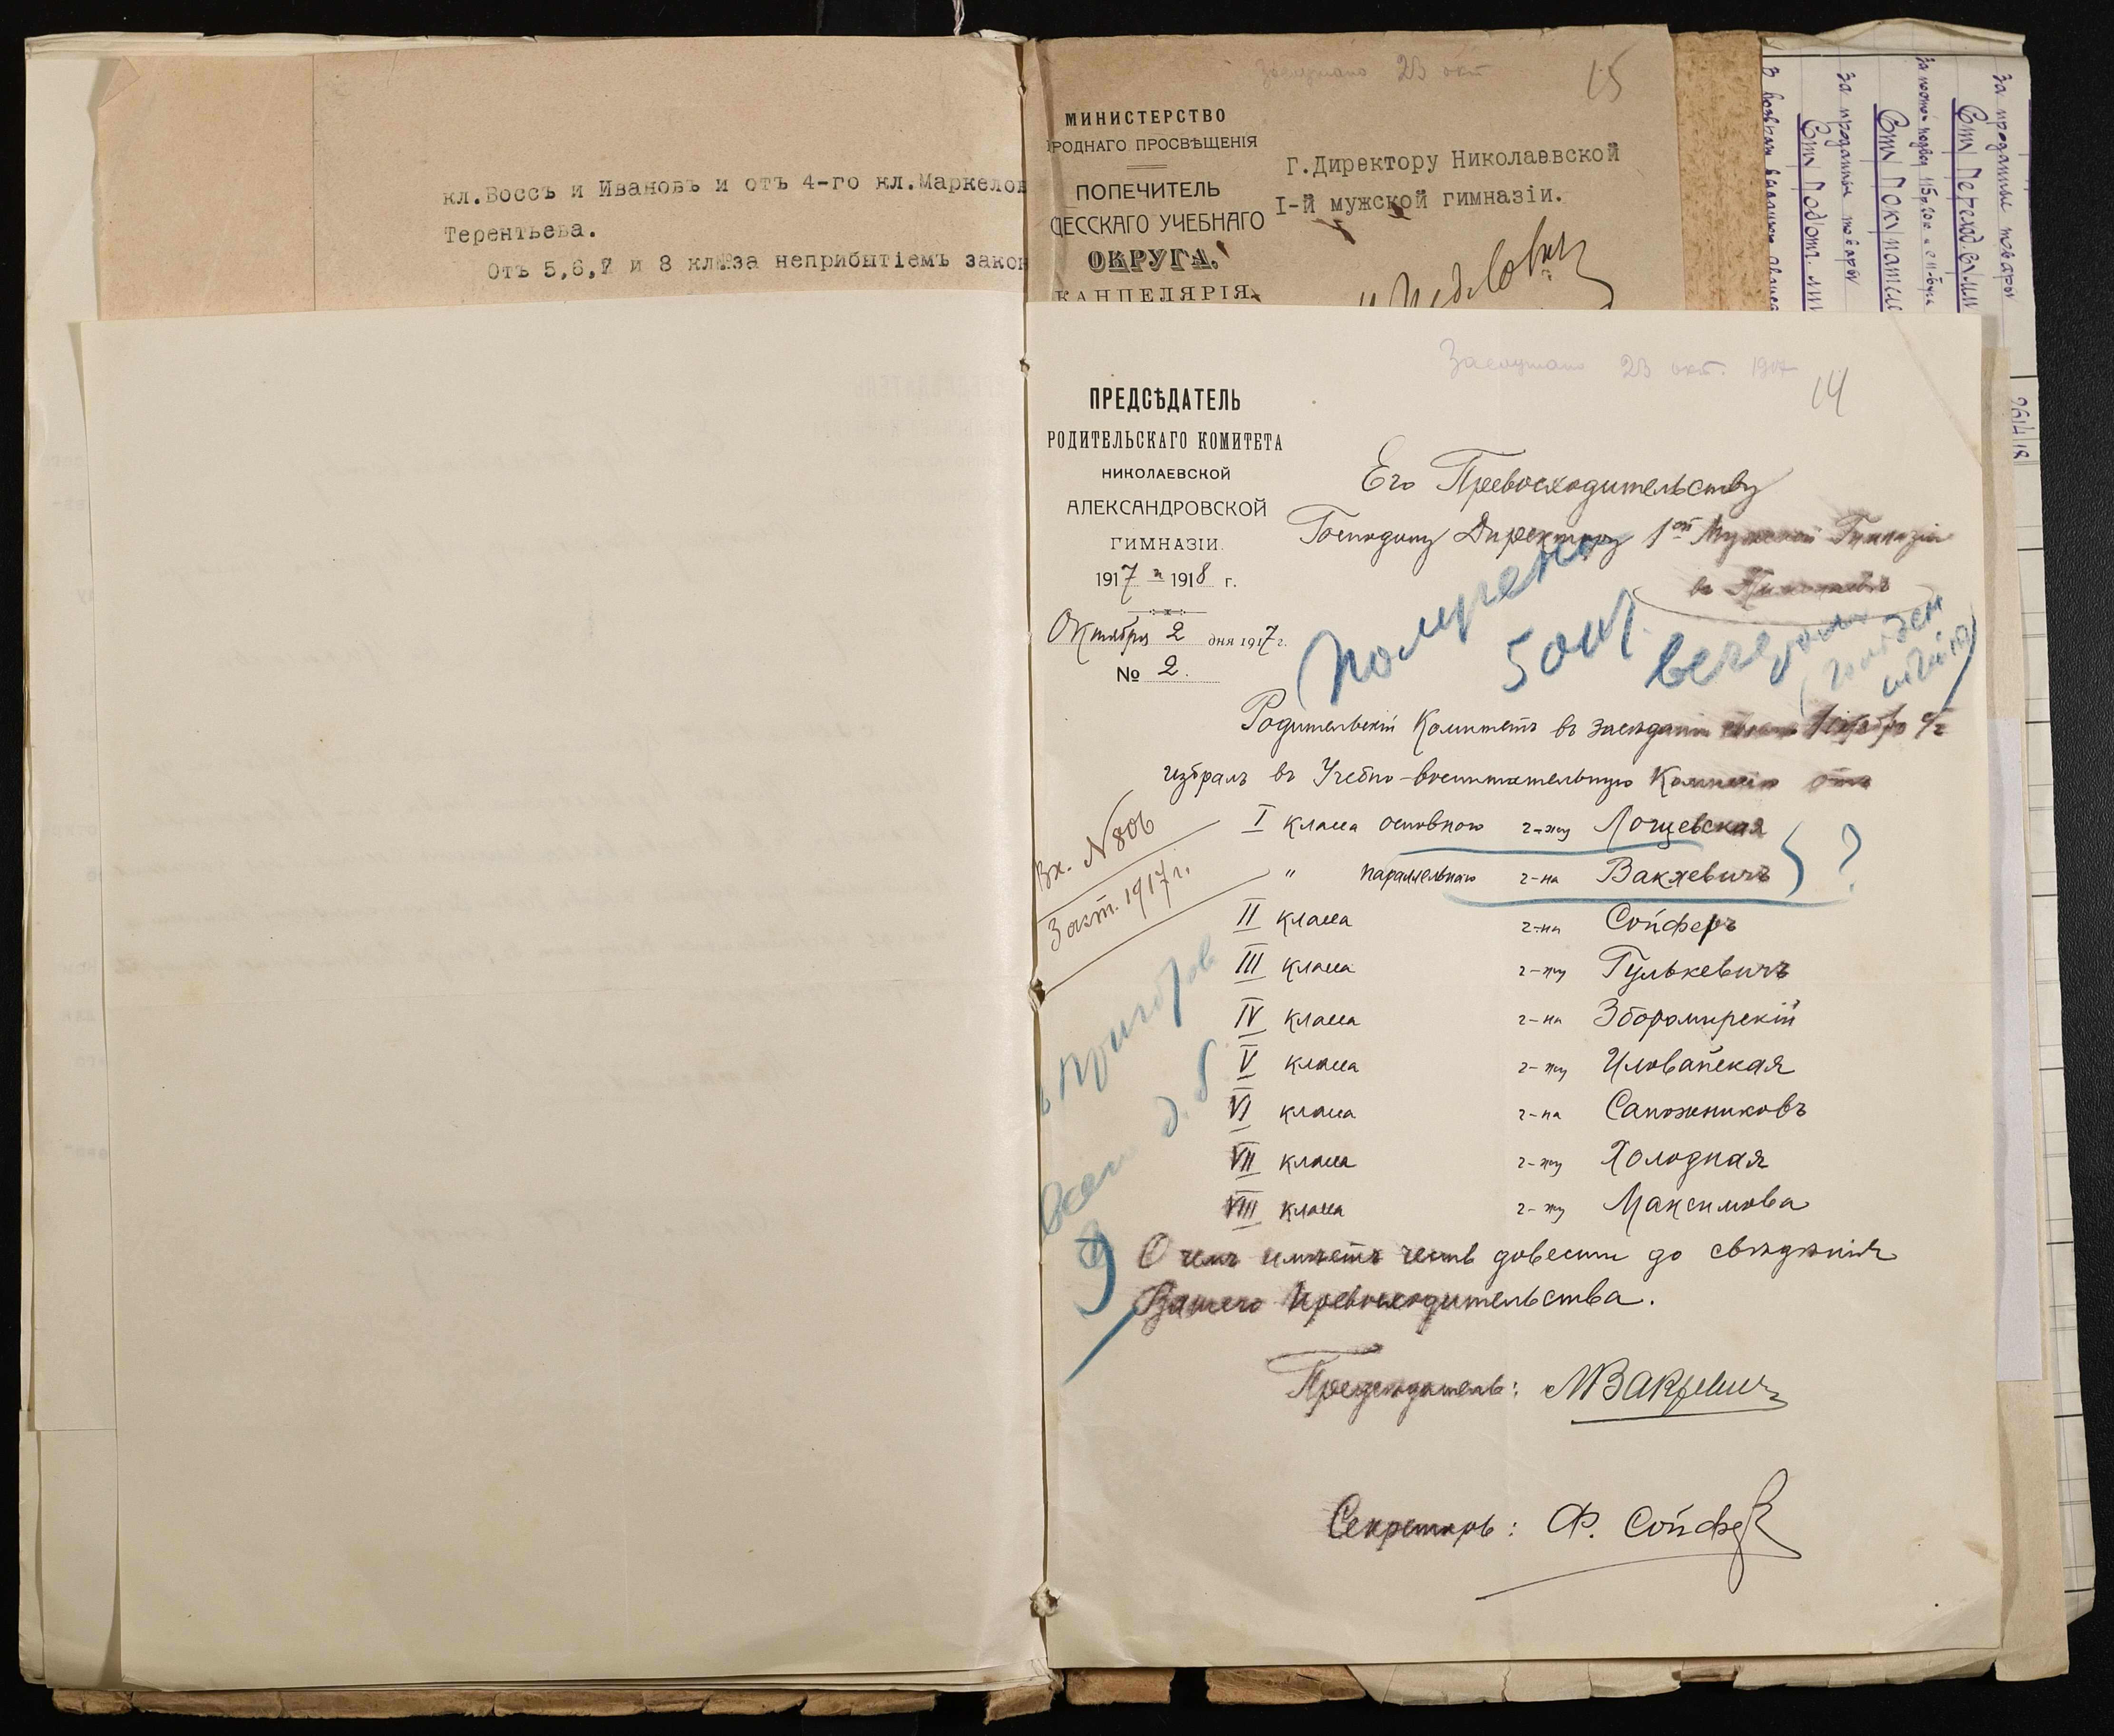 кл.Боссъ и Ивановъ и отъ 4-го кл.Маркелов
Терентьева.
Отъ 5,6,7 и 8 кл. за неприбытіемъ закон
Заслушано 23 окт.
15
МИНИСТЕРСТВО
РОДНАГО ПРОСВѢЩЕНІЯ
ПОПЕЧИТЕЛЬ
ДЕССКАГО УЧЕБНАГО
ОКРУГА.
КАНЦЕЛЯРІЯ
Г.Директору Николаевской
I-й мужской гимназіи.
За проданные товары
За проданные товары
9614/18
Заслушано 23 окт. 1917
14
ПРЕДСѢДАТЕЛЬ
РОДИТЕЛЬСКАГО КОМИТЕТА
НИКОЛАЕВСКОЙ
АЛЕКСАНДРОВСКОЙ
ГИМНАЗІИ.
1917 – 1918 г.
Октября 2 дня 1917 г.
№ 2.
Его Превосходительству
Господину Директору 1ой Мужской Гимназіи
въ Николаевѣ
получено
5 окт. вечером
Родительскій Комитетъ въ засѣданіи 1 октября с/г
избралъ въ Учебно-воспитательную Комиссію отъ
Вх. N 806
3 окт. 1917 г.
I класса основного г-жу Логцевская
" параллельнаго г-на Вакяевичъ ?
II класса г-на Сойферъ
III класса г-жу Гулькевичъ
IV класса г-на Зборомирскій
V класса г-жу Иловайская
VI класса г-на Сапожниковъ
VII класса г-жу Холодная
VIII класса г-жу Максимова
Всего д. б.
9
О чемъ имѣетъ честь довести до свѣдѣнія
Вашего Превосходительства.
Предсѣдатель:
Секретарь: Ф. Сойфер